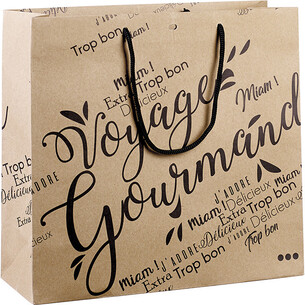 Trop bon
Miam !
Extra
Trop bon
Délicieux
Miam !
Voyage
Gourmand
Trop bon
Extra
Délicieux
J'ADORE
J'ADORE
Miam !
Délicieux
Extra
Trop bon
Délicieux
Miam !
Extra
Trop bon
J'ADORE
Miam !
Délicieux
Extra
Trop bon
Trop bon